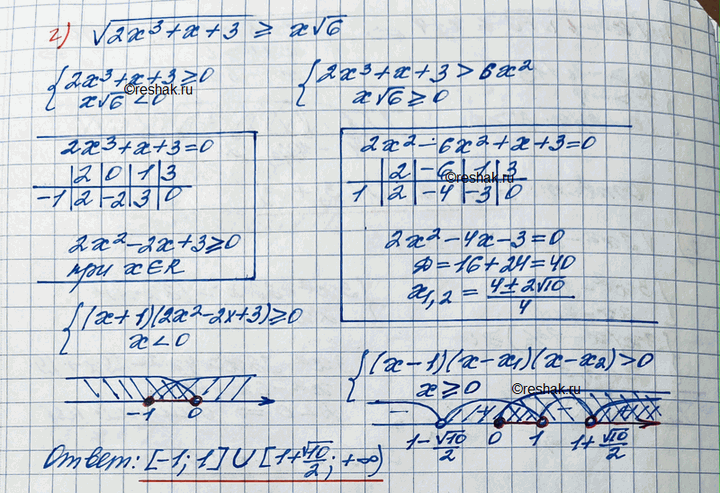 г) √(2x³+x+3) ≥ x√6
{ 2x³+x+3≥0
x√6 <0
{ 2x³+x+3>6x²
x√6≥0
©reshak.ru
2x³+x+3=0
2 0 1 3
-1 2 -2 3 0
2x²-2x+3≥0
при x∈R
2x²-6x²+x+3=0
2 -6 1 3
1 2 -4 -3 0
©reshak.ru
2x²-4x-3=0
D=16+24=40
x₁,₂ = (4±2√10)/4
{ (x+1)(2x²-2x+3)≥0
x<0
-1 0
{ (x-1)(x-x₁)(x-x₂)>0
x≥0
©reshak.ru
- + - +
1-√10/2 0 1 1+√10/2
Ответ: [-1;1]∪[1+√10/2; +∞)